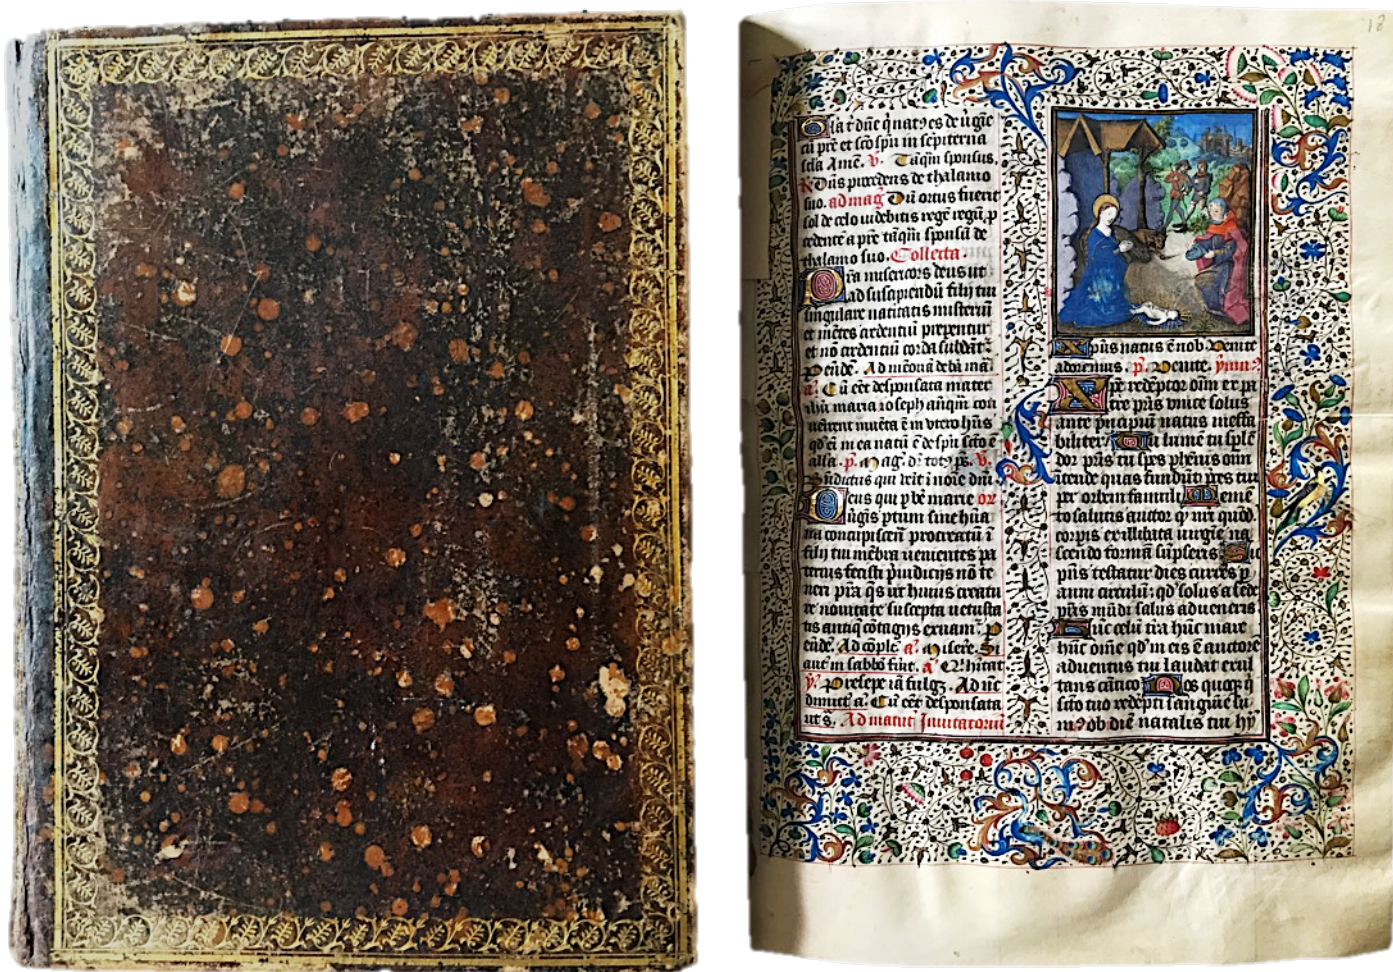 18
cū pr̄e et sc̄o sp̄u in sēpiterna
sc̄la Amē. v. Tāq̄m sponsus.
Dn̄s procedens de thalamo
suo. ad maḡ Dū ortus fuerit
sol de celo videbitis regē regū, p
cedentē a pr̄e tāq̄m sponsū de
thalamo suo. Collecta.
misericors deus ut
ad suscipiendū filij tui
singulare natitatis misteriū
et mētes credentiū preparentur
et nō credentiū corda subdāt᷑
Ad
a. Cū eēt desponsata mater
ihū maria ioseph anteq̄m con
venirent in vtero hn̄s
natū ē de sp̄u sc̄to ē
alla. p̄. Mag. v.
Bn̄dictus qui venit ī noīe dn̄i
Deus qui p bē marie or
v̄gīs ptum sine hūa
na concupiscen procreatū ī
filij tui mēbra venientes pa
ternis fecisti p̄iudicijs nō te
neri p̄ta q̄s ut huius creatu
re novitate suscepta vetusta
tis antiq̄ cōtagijs exuam᷑. P
Ad cōplē a᷑ Misere. Si
aut̄ in sabbō fūit. a᷑ Habitat
v᷑. Presepe iā fulg₃. Ad nūc
dimitt̄ a᷑. Cū eēt desponsata
ut s̄. Ad matut̄ Inuitatoriū
Xp̄us natus ē nob. Venite
adoremus. p̄. Venite. ymn᷒
Xp̄e redēptor oīm ex pa
tre pr̄is vnice solus
ante p̄ncipiū natus ineffa
biliter. Tu lumē tu splē
dor pr̄is tu spes phēnis oīm
ītende quas fundūt p̄ces tui
per orbem famuli. Memē
to salutis auctor q̄ nr̄i quōd.
corpis ex illibata virgīe na
scendo formā sūpseris. Sic
pn̄s testatur dies currēs p
anni circulū: qd̄ solus a sede
pr̄is mūdi salus adveneris
Hūc celū tr̄a hūc mare
hūc om̄e qd̄ in eis ē auctorē
adventus tui laudat exul
tans cātico. Nos quoq̄₃ q̄
sāto tuo redēpti sanguīe su
m᷒ ob diē natalis tui hy